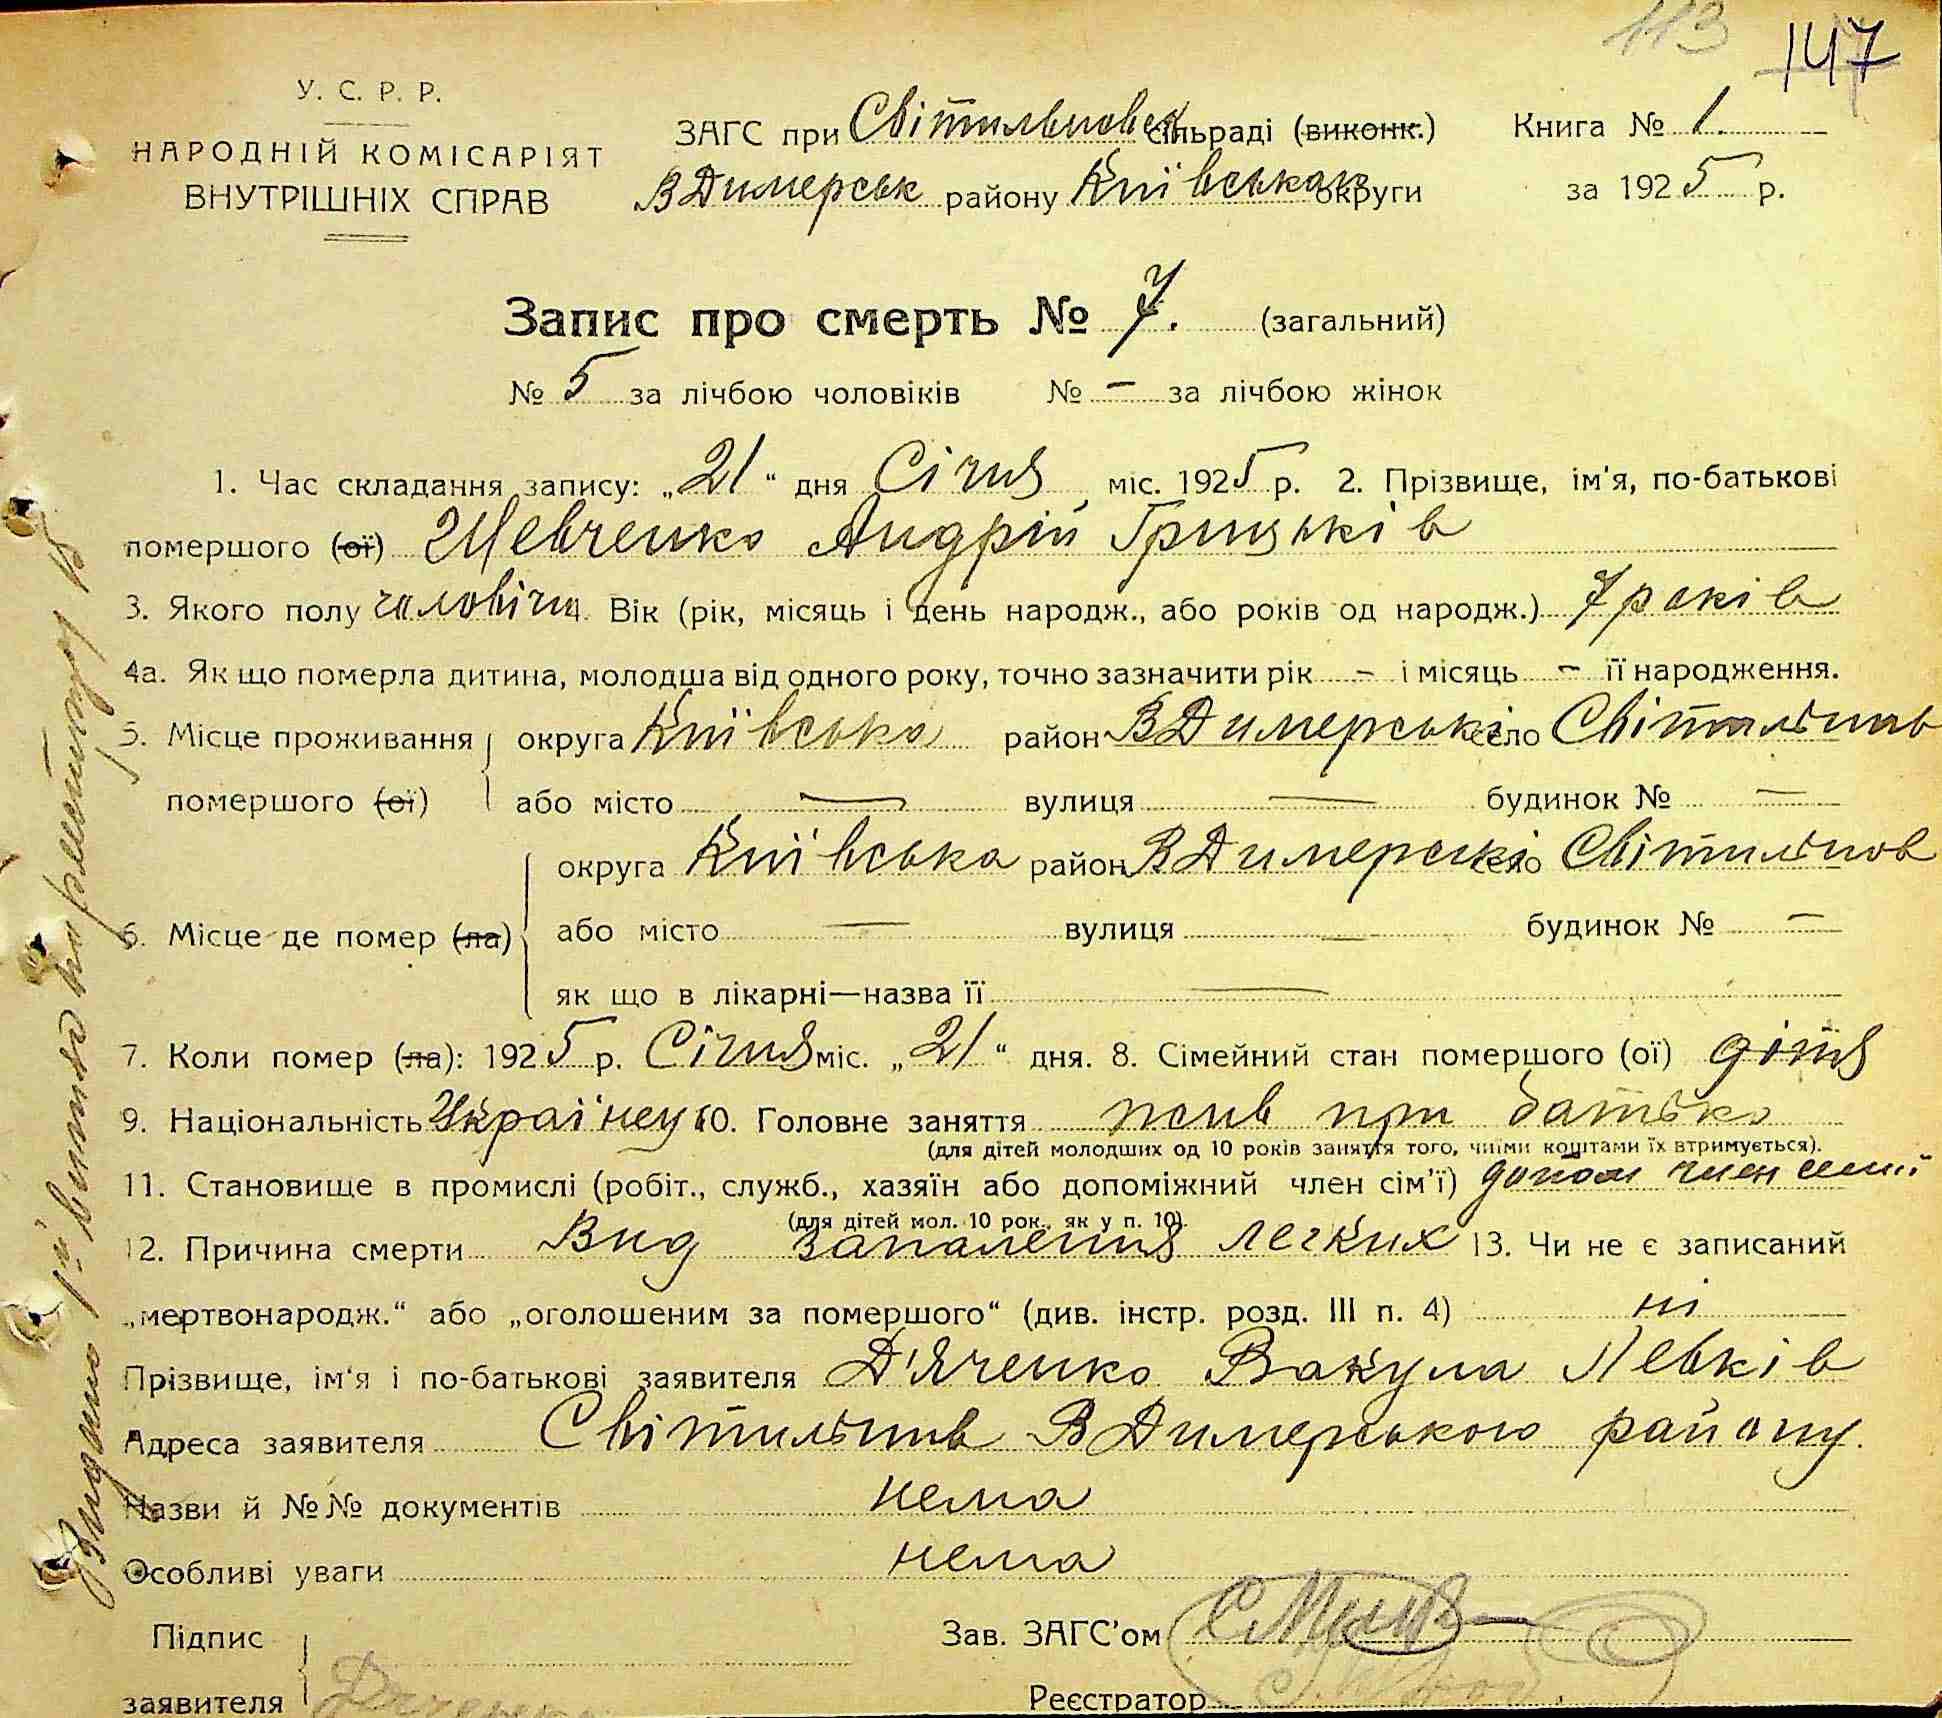 113 147
У. С. Р. Р.
НАРОДНІЙ КОМІСАРІЯТ
ВНУТРІШНІХ СПРАВ
ЗАГС при Світильновск сільраді (виконк.) Книга № 1.
ВДимерськ району Київськой округи за 1925 р.
Запис про смерть № 7. (загальний)
№ 5 за лічбою чоловіків № — за лічбою жінок
1. Час складання запису: „21“ дня Січня міс. 1925 р. 2. Прізвище, ім'я, по-батькові
помершого (ої) Шевченко Андрій Грицьків
3. Якого полу чоловічи Вік (рік, місяць і день народж., або років од народж.) 7 років
4а. Як що померла дитина, молодша від одного року, точно зазначити рік – і місяць – її народження.
5. Місце проживання округа Київська район ВДимерські село Світильнів
помершого (ої) або місто — вулиця — будинок № —
округа Київська район ВДимерські село Світильнов
6. Місце де помер (ла) або місто — вулиця — будинок № —
як що в лікарні—назва її —
7. Коли помер (ла): 1925 р. Січня міс. „21“ дня. 8. Сімейний стан помершого (ої) дітя
9. Національність Українец 10. Головне заняття жив при батько
(для дітей молодших од 10 років заняття того, чиїми коштами їх втримується).
11. Становище в промислі (робіт., служб., хазяїн або допоміжний член сім'ї) допом член семії
(для дітей мол. 10 рок., як у п. 10).
12. Причина смерти Вид запаления легких 13. Чи не є записаний
„мертвонародж.“ або „оголошеним за помершого“ (див. інстр. розд. III п. 4) ні
Прізвище, ім'я і по-батькові заявителя Д'яченко Вакула Левків
Адреса заявителя Світильнів ВДимерського району
Назви й №№ документів нема
Особливі уваги нема
Підпис Зав. ЗАГС'ом
заявителя Дяченко Реєстратор